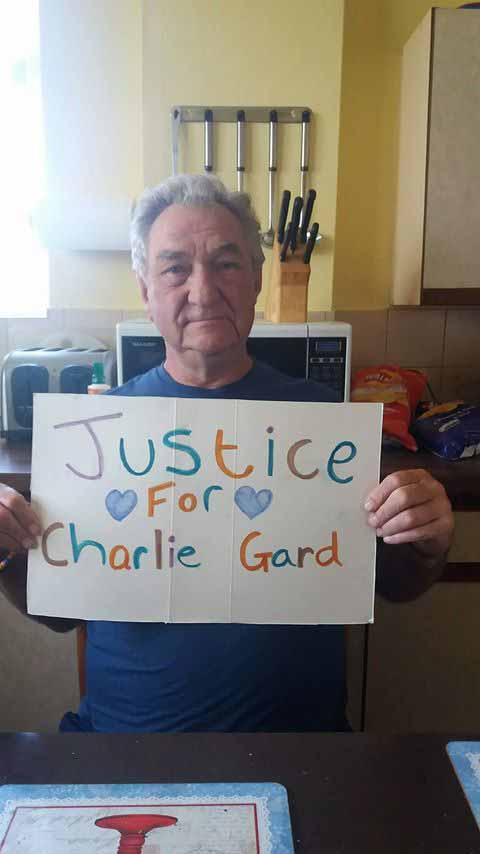 Justice
For
Charlie Gard